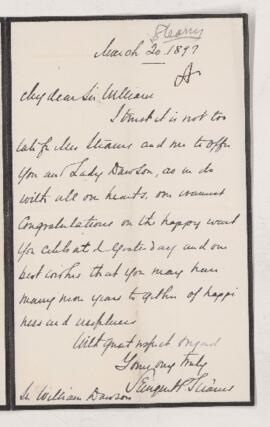 Stearns
March 20. 1897
My dear Sir William
I trust it is not too
late for Mrs Stearns and me to offer
you and Lady Dawson, as we do
with all our hearts, our warmest
Congratulations on the happy event
you celebrated yesterday and our
best wishes that you may have
many more years together of happi
ness and usefulness
With great respect and regard
Yours very truly
Sergent P. Stearns
Sir William Dawson